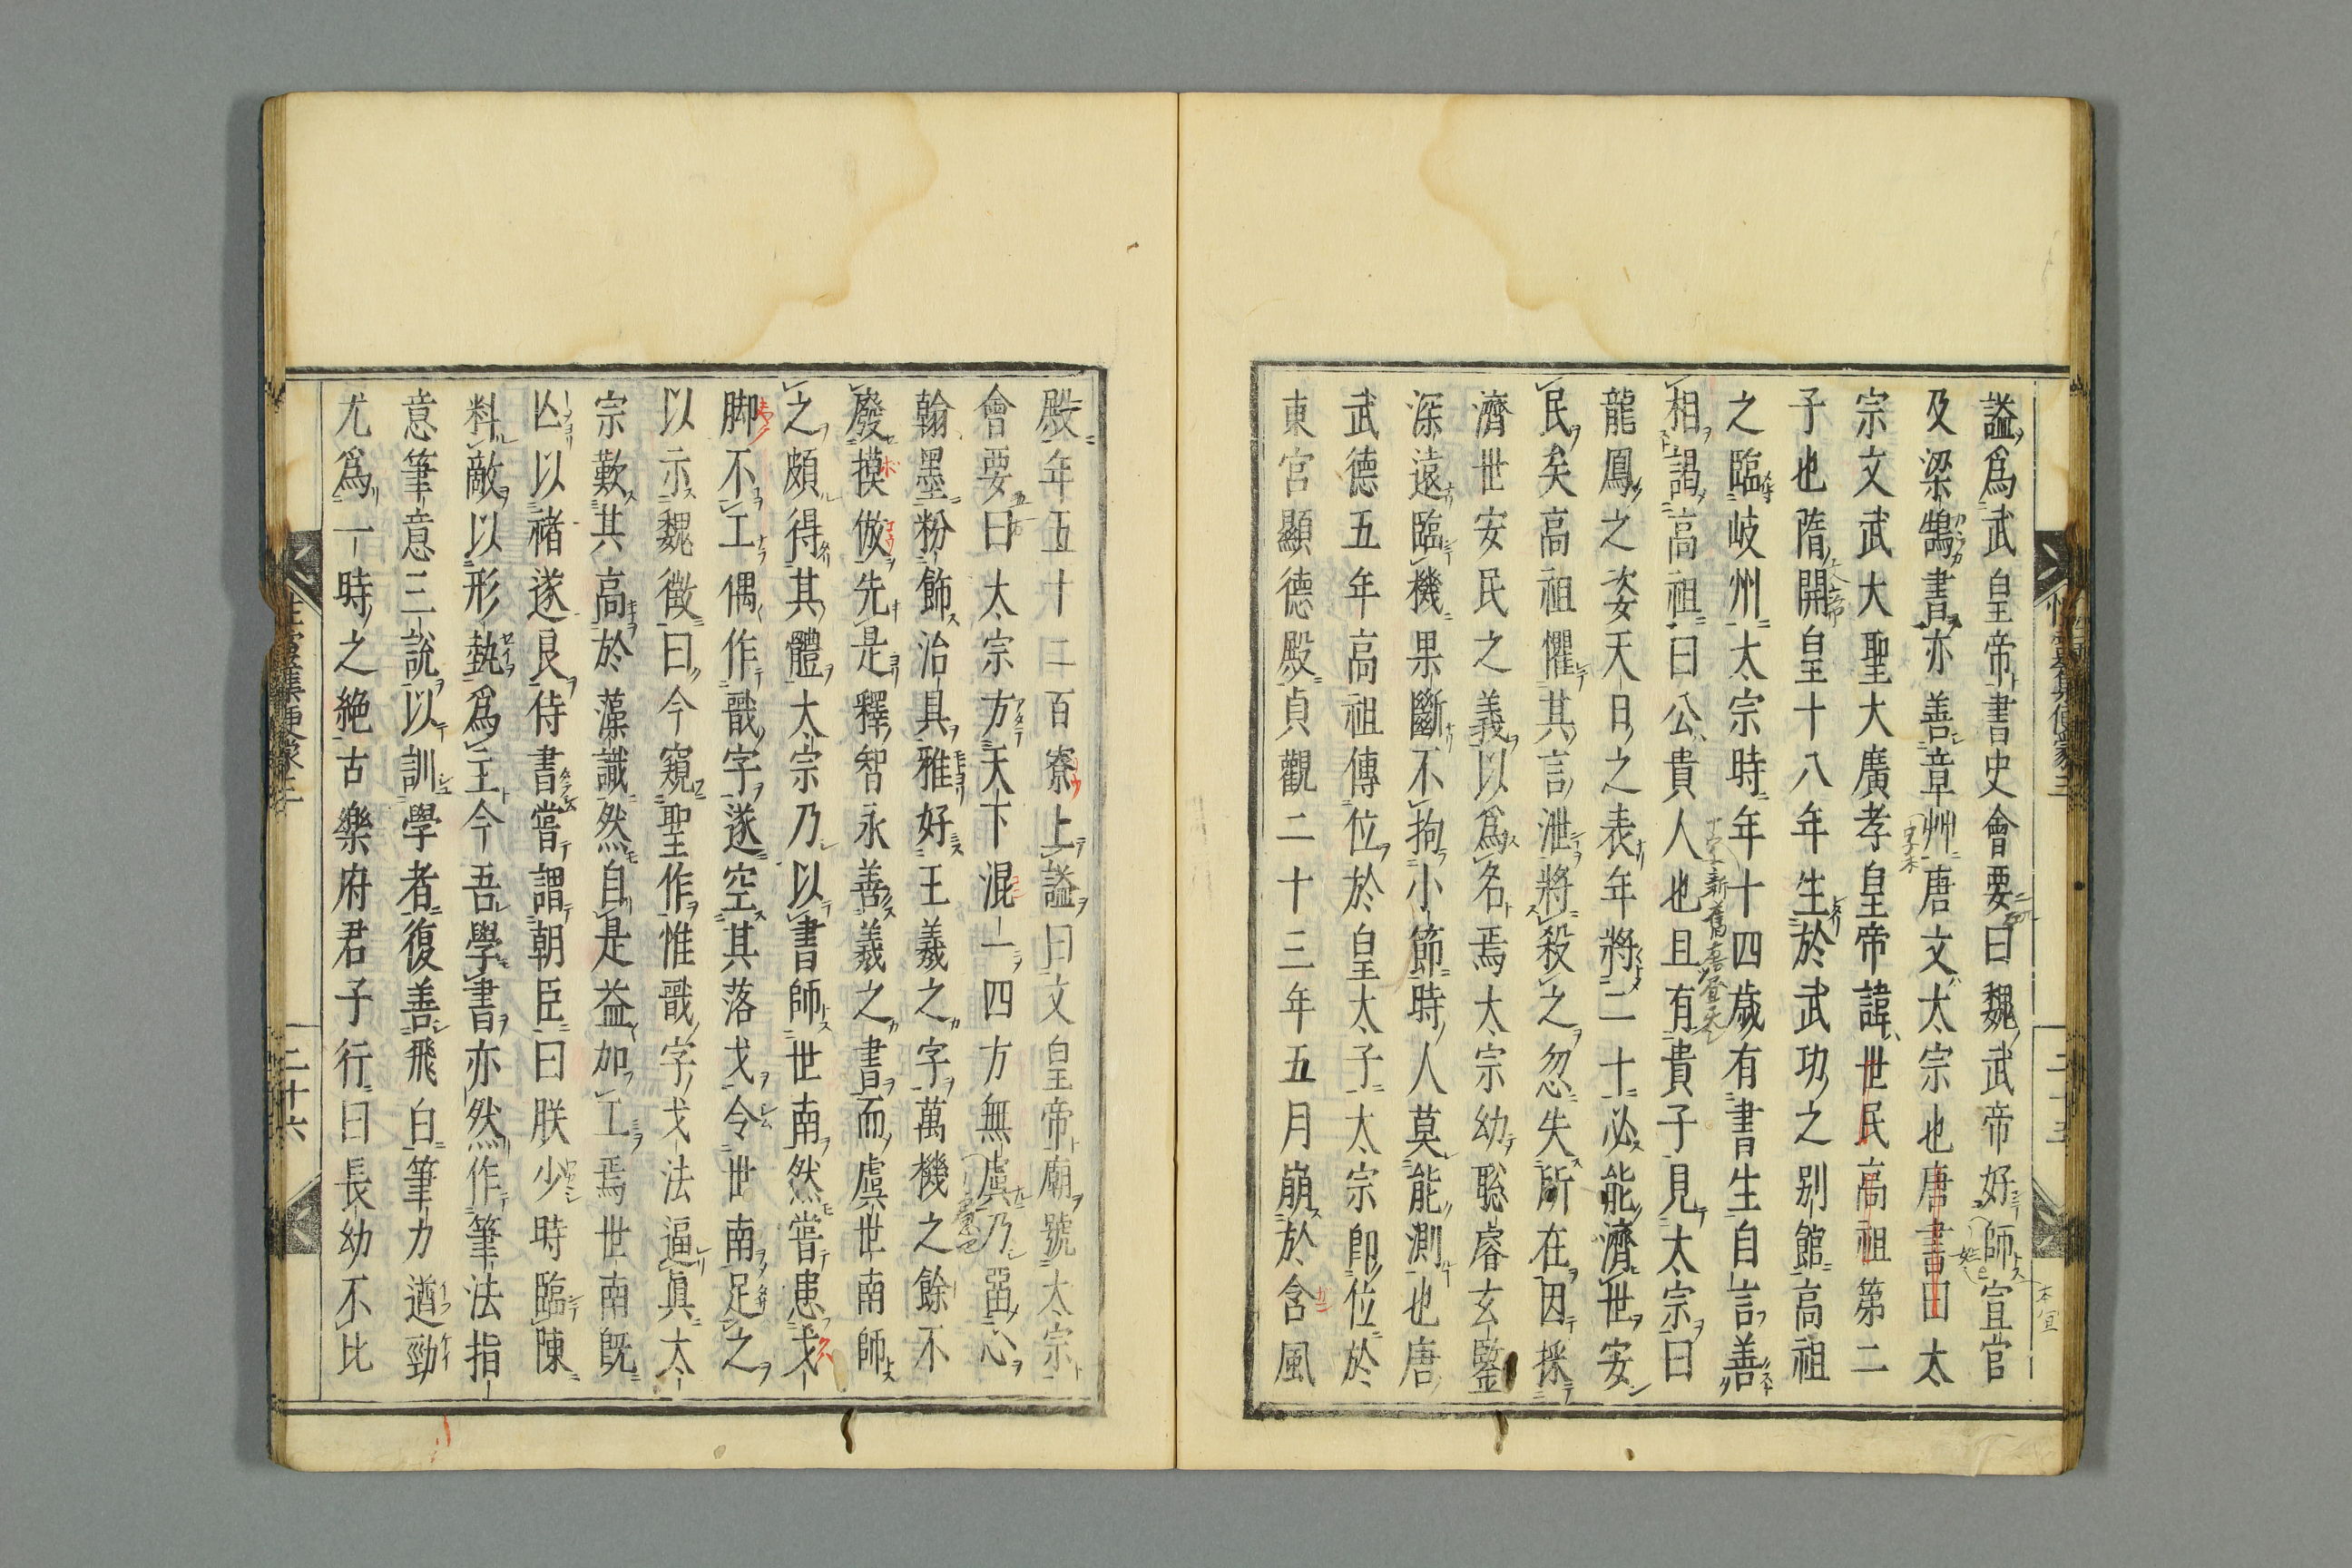 謚爲武皇帝書史會要曰魏武帝好師宜官
及梁鵠書亦善章艸唐文太宗也唐書曰太
宗文武大聖大廣孝皇帝諱世民高祖第二
子也隋開皇十八年生於武功之別館高祖
之臨岐州太宗時年十四歳有書生自言善
相謁高祖曰公貴人也且有貴子見太宗曰
龍鳳之姿天日之表年將二十必能濟世安
民矣高祖懼其言泄將殺之忽失所在因採
濟世安民之義以爲名焉太宗幼聡睿玄鑒
深遠臨機果斷不拘小節時人莫能測也唐
武德五年高祖傳位於皇太子太宗即位於
東宮顯德殿貞觀二十三年五月崩於含風
殿年五十二百寮上謚曰文皇帝廟號太宗
會要曰太宗方天下混一四方無虞乃畱心
翰墨粉飾治具雅好王羲之字萬機之餘不
廢摸倣先是釋智永善羲之書而虞世南師
之頗得其體太宗乃以書師世南然嘗患戈
脚不工偶作戩字遂空其落戈令世南足之
以示魏徵曰今窺聖作惟戩字戈法逼眞太
宗歎其高於藻識然自是益加工焉世南既
凶以褚遂良侍書嘗謂朝臣曰朕少時臨陳
料敵以形勢爲主今吾學書亦然作筆法指
意筆意三說以訓學者復善飛白筆力遒勁
尤爲一時之絶古樂府君子行曰長幼不比
二十六